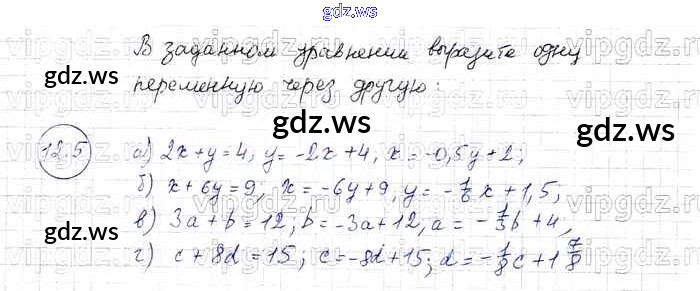 gdz.ws
В заданном уравнении выразите одну
переменную через другую:
gdz.ws
gdz.ws
gdz.ws
12.5
а) 2x+y=4, y=-2x+4, x=-0,5y+2;
б) x+6y=9; x=-6y+9, y=-1/6 x+1,5;
в) 3a+b=12; b=-3a+12, a=-1/3 b+4,
г) c+8d=15; c=-8d+15; d=-1/8 c+1 7/8
gdz.ws
gdz.ws
gdz.ws